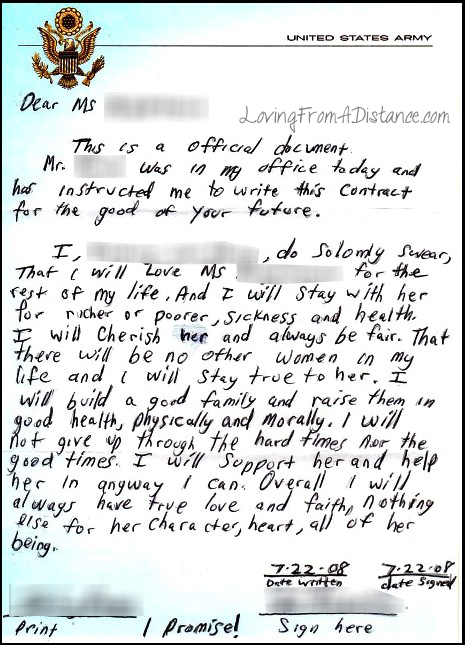 UNITED STATES ARMY
LovingFromADistance.com
Dear Ms
This is a official document.
Mr. was in my office today and
has instructed me to write this Contract
for the good of your future.
I, , do Solomly Swear,
That I will Love Ms for the
rest of my life. And I will stay with her
for richer or poorer, sickness and health.
I will Cherish her and always be fair. That
there will be no other women in my
life and I will stay true to her. I
will build a good family and raise them in
good health, physically and Morally. I will
not give up through the hard times nor the
good times. I will support her and help
her in anyway I can. Overall I will
always have true love and faith, nothing
else for her Character, heart, all of her
being.
7-22-08 7-22-08
Date written date Signed
Print I Promise! Sign here